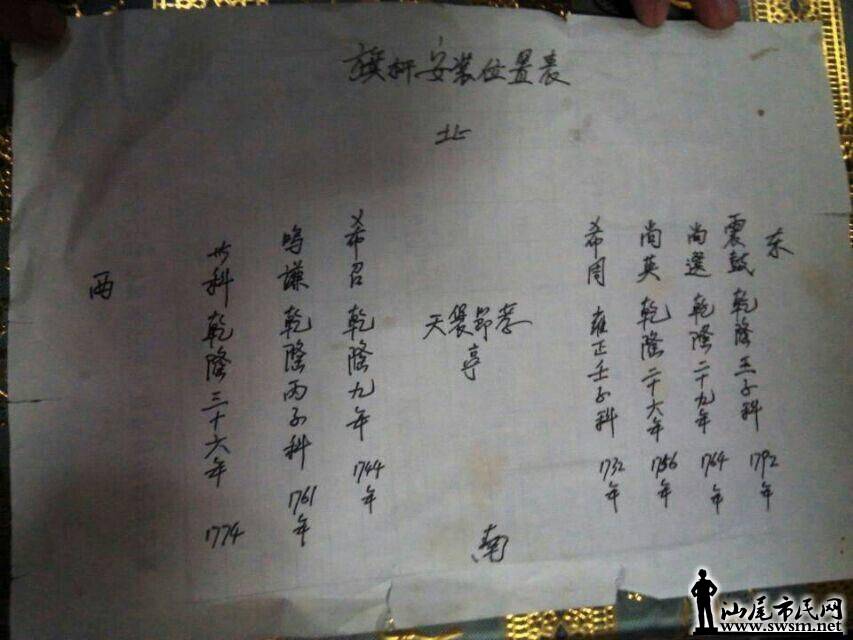 旗杆安装位置表
北
东
震鼓 乾隆壬子科 1792年
尚選 乾隆二十九年 1764年
尚英 乾隆二十六年 1756年
希周 雍正壬子科 1732年
天褒節孝
亭
希召 乾隆九年 1744年
鸣謙 乾隆丙子科 1761年
科 乾隆三十六年 1774
西
南
汕尾市民网
www.swsm.net